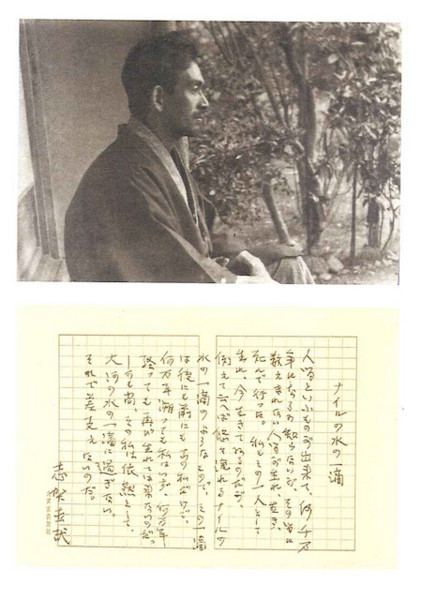 ナイルの水の一滴
人間といふものが出来て、何千万
年になるか知らないが、その間に
数えきれない人間が生れ、生き、
死んで行った。私もその一人として
生れ、今生きてゐるのだが、
例えて云へば悠々流れるナイルの
水の一滴のやうなもので、その一滴
は後にも前にもこの私だけで、
何万年溯っても私はゐず、何万年
経っても再び生れては来ないのだ。
しかも尚、その私は依然として、
大河の水の一滴に過ぎない。
それで差支えないのだ。
志賀直哉